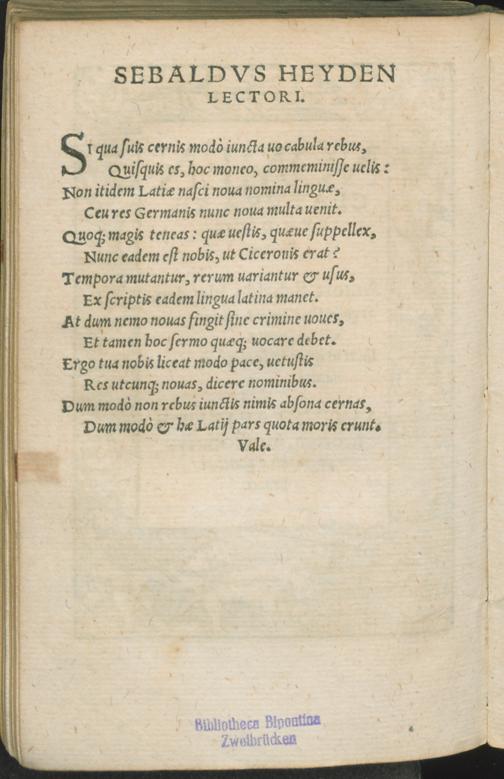 SEBALDVS HEYDEN
LECTORI.
SI qua suis cernis modò iuncta uocabula rebus,
Quisquis es, hoc moneo, commeminisse uelis:
Non itidem Latiæ nasci noua nomina linguæ,
Ceu res Germanis nunc noua multa uenit.
Quoq; magis teneas: quæ uestis, quæue suppellex,
Nunc eadem est nobis, ut Ciceronis erat?
Tempora mutantur, rerum uariantur & usus,
Ex scriptis eadem lingua latina manet.
At dum nemo nouas fingit sine crimine uoues,
Et tamen hoc sermo quæq; uocare debet.
Ergo tua nobis liceat modo pace, uetustis
Res utcunq; nouas, dicere nominibus.
Dum modò non rebus iunctis nimis absona cernas,
Dum modò & hæ Latij pars quota moris erunt.
Vale.
Bibliotheca Bipontina
Zweibrücken